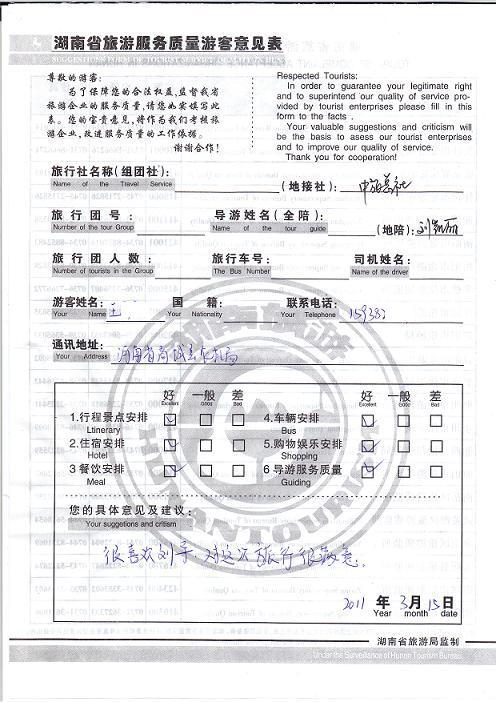 湖南省旅游服务质量游客意见表
SUGGESTIONS FORM OF TOURIST SERVICE QUALITY IN HUNAN
尊敬的游客:
为了保障您的合法权益,监督我省
旅游企业的服务质量,请您如实填写此
表。您的宝贵意见,将作为我们考核旅
游企业,改进服务质量的工作依据。
谢谢合作!
Respected Tourists:
In order to guarantee your legitimate right
and to superintend our quality of service pro-
vided by tourist enterprises please fill in this
form to the facts .
Your valuable suggestions and criticism will
be the basis to asess our tourist enterprises
and to improve our quality of service.
Thank you for cooperation!
旅行社名称(组团社): (地接社):
Name of the Travel Service
旅行团号: 导游姓名(全陪) (地陪):
Number of the tour Group Name of the tour guide
旅行团人数: 旅行车号: 司机姓名:
Number of tourists in the Group The Bus Number Name of the driver
游客姓名: 王 国籍: 联系电话: 159383
Your Name Your Nationality Your Telephone
通讯地址:
Your Address
好 一般 差 好 一般 差
Excellent Good Bad Excellent Good Bad
1.行程景点安排 4.车辆安排
Ltinerary Bus
2.住宿安排 5.购物娱乐安排
Hotel Shopping
3 餐饮安排 6 导游服务质量
Meal Guiding
您的具体意见及建议:
Your suggetions and critism
很喜欢刘导,对这次旅行很满意.
2011 年 3月 15日
Year month date
湖南省旅游局监制
Under the Surveillance of Hunan Tourism Bureau
HUNAN TOURISM